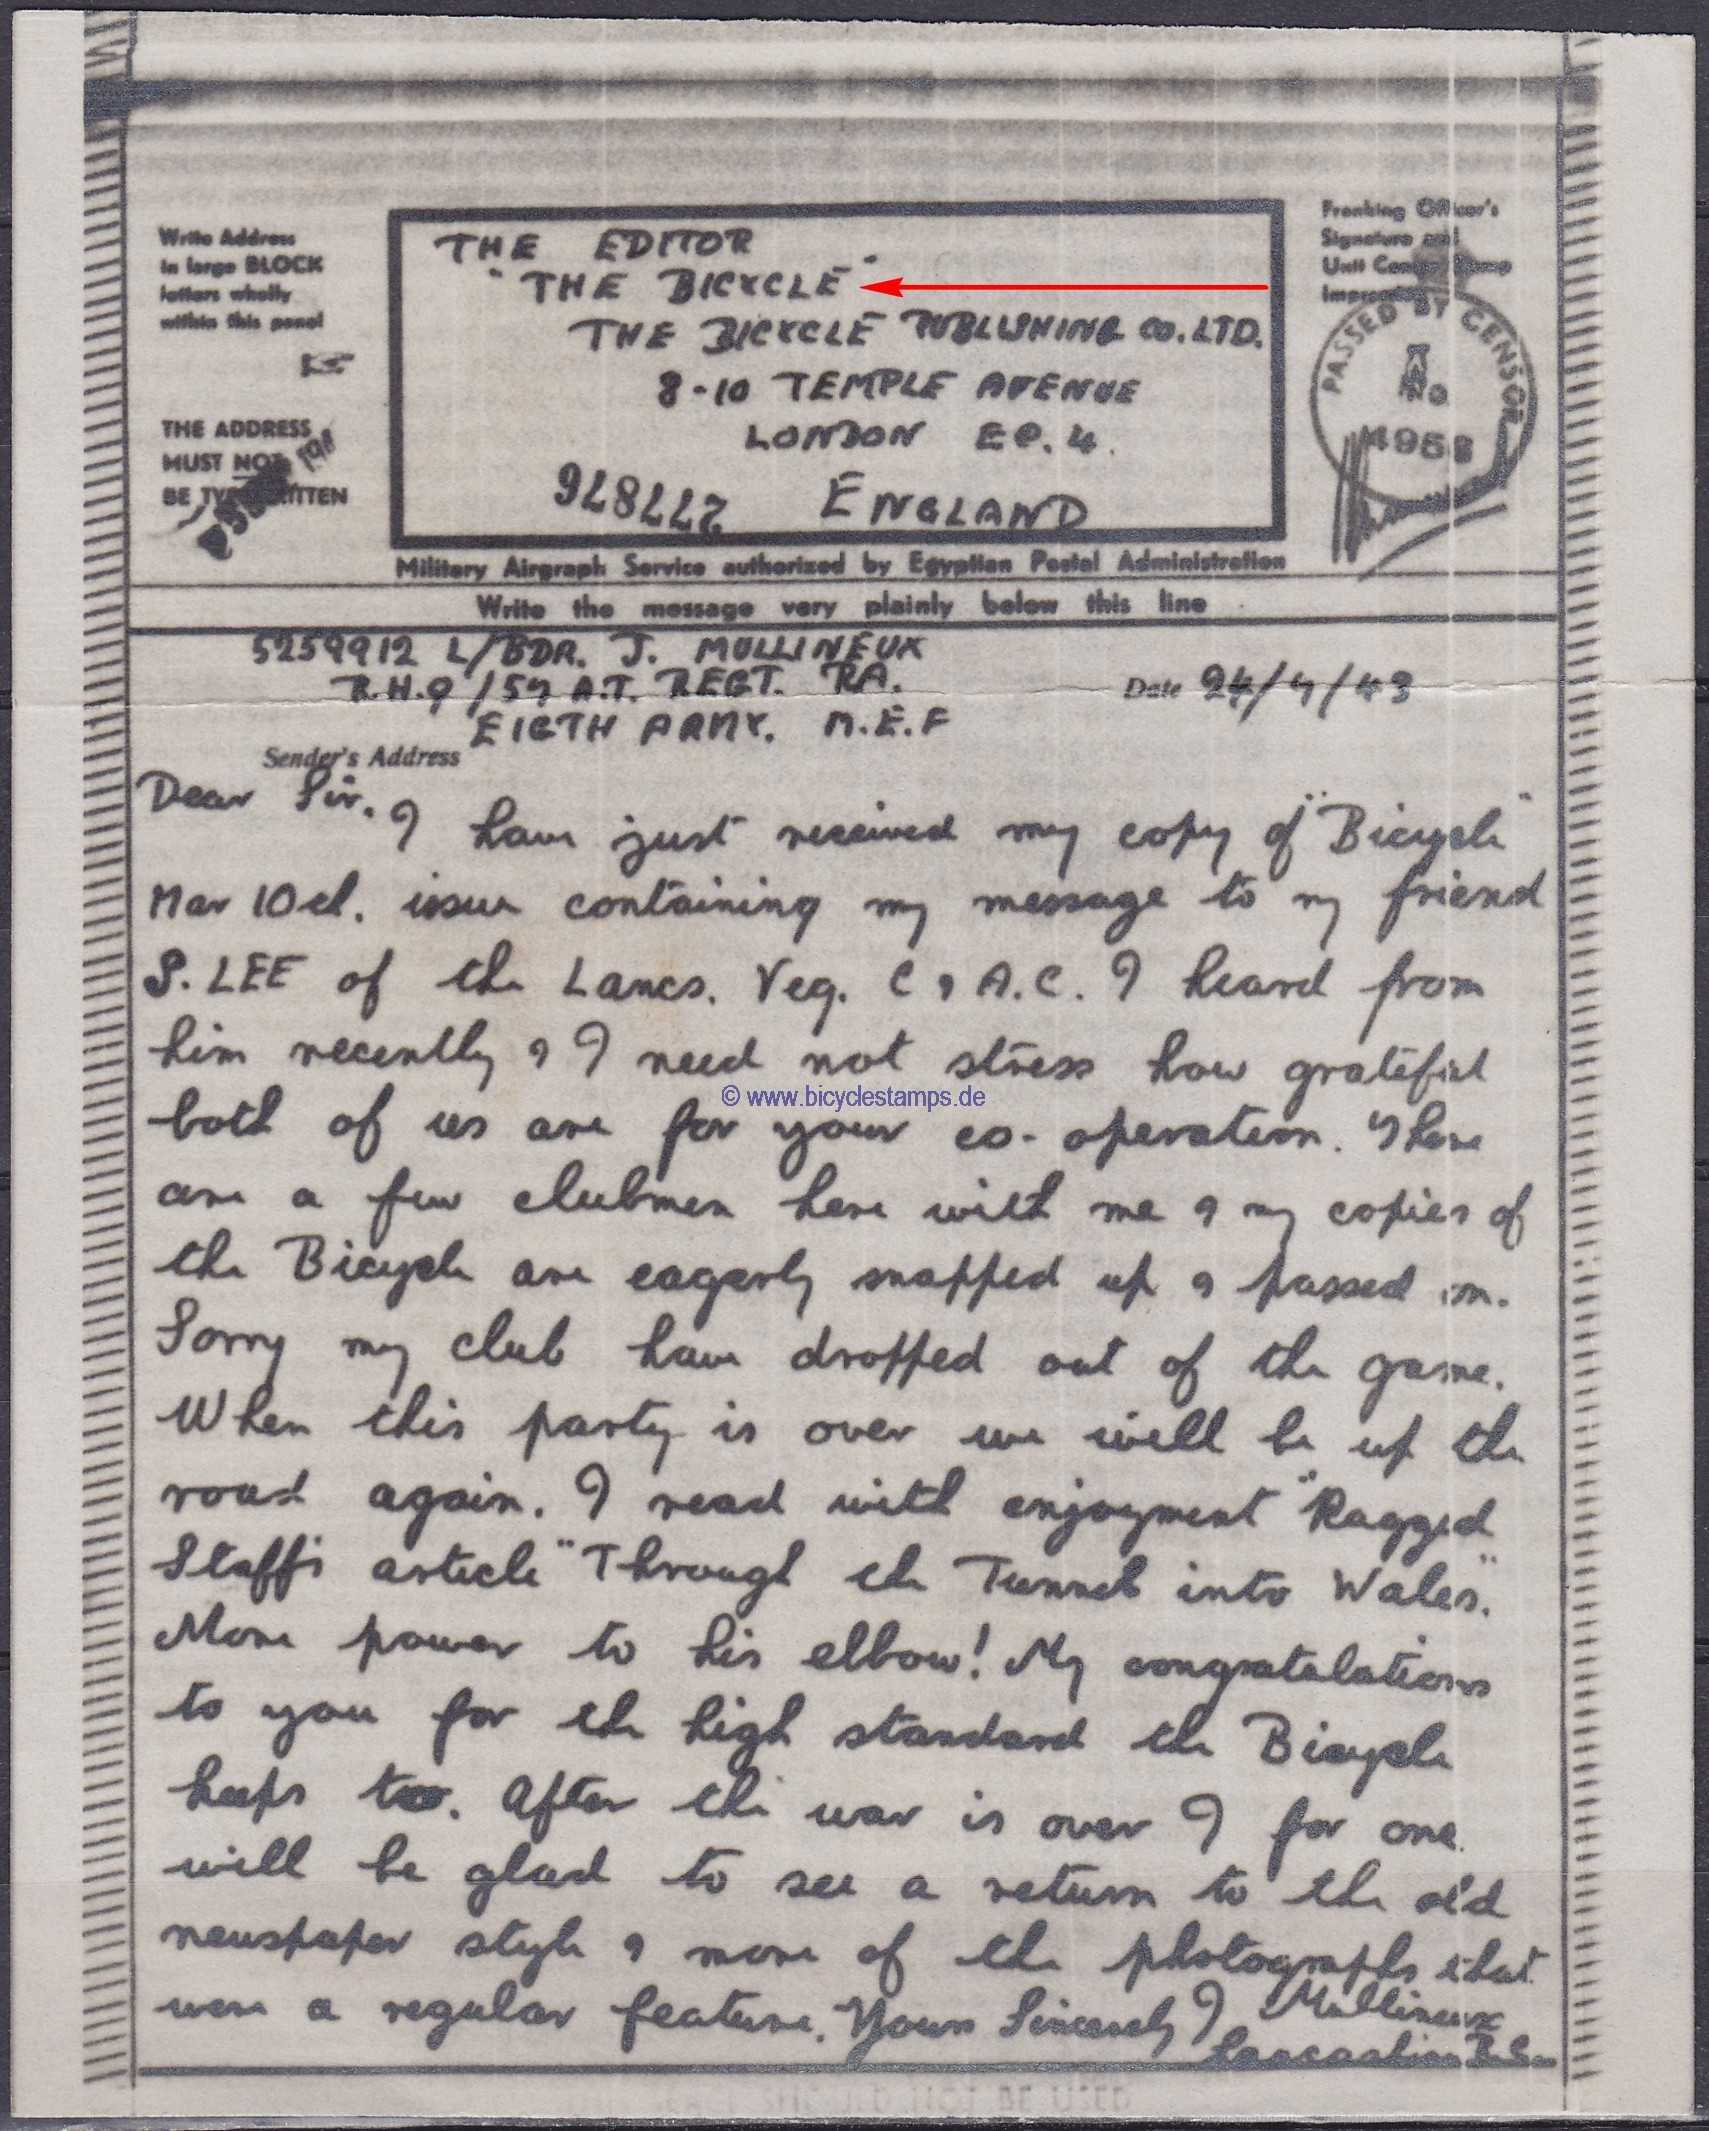 Write Address
in large BLOCK
letters wholly
within this panel
THE ADDRESS
MUST NOT
BE TYPEWRITTEN
THE EDITOR
"THE BICYCLE"
THE BICYCLE PUBLISHING CO. LTD.
8-10 TEMPLE AVENUE
LONDON EC. 4.
ENGLAND
227876
Franking Officer's
Signature and
Unit Censor Stamp
Impression
PASSED BY CENSOR
No
Military Airgraph Service authorized by Egyptian Postal Administration
Write the message very plainly below this line
5259912 L/BDR. J. MULLINEUX
R.H.Q/57 A.T. REGT. RA.
EIGTH ARMY. M.E.F
Sender's Address
Date 24/7/43
Dear Sir.
I have just received my copy of "Bicycle"
Mar 10th. issue containing my message to my friend
S. LEE of the Lancs. Veg. C & A.C. I heard from
him recently & I need not stress how grateful
both of us are for your co-operation. There
are a few clubmen here with me & my copies of
the Bicycle are eagerly snapped up & passed on.
Sorry my club have dropped out of the game.
When this party is over we will be up the
road again. I read with enjoyment "Ragged
Staff's article "Through the Tunnel into Wales".
More power to his elbow! My congratulations
to you for the high standard the Bicycle
keeps too. After the war is over I for one
will be glad to see a return to the old
newspaper style & more of the photographs that
were a regular feature. Yours Sincerely J Mullineux
© www.bicyclestamps.de
NOT BE USED